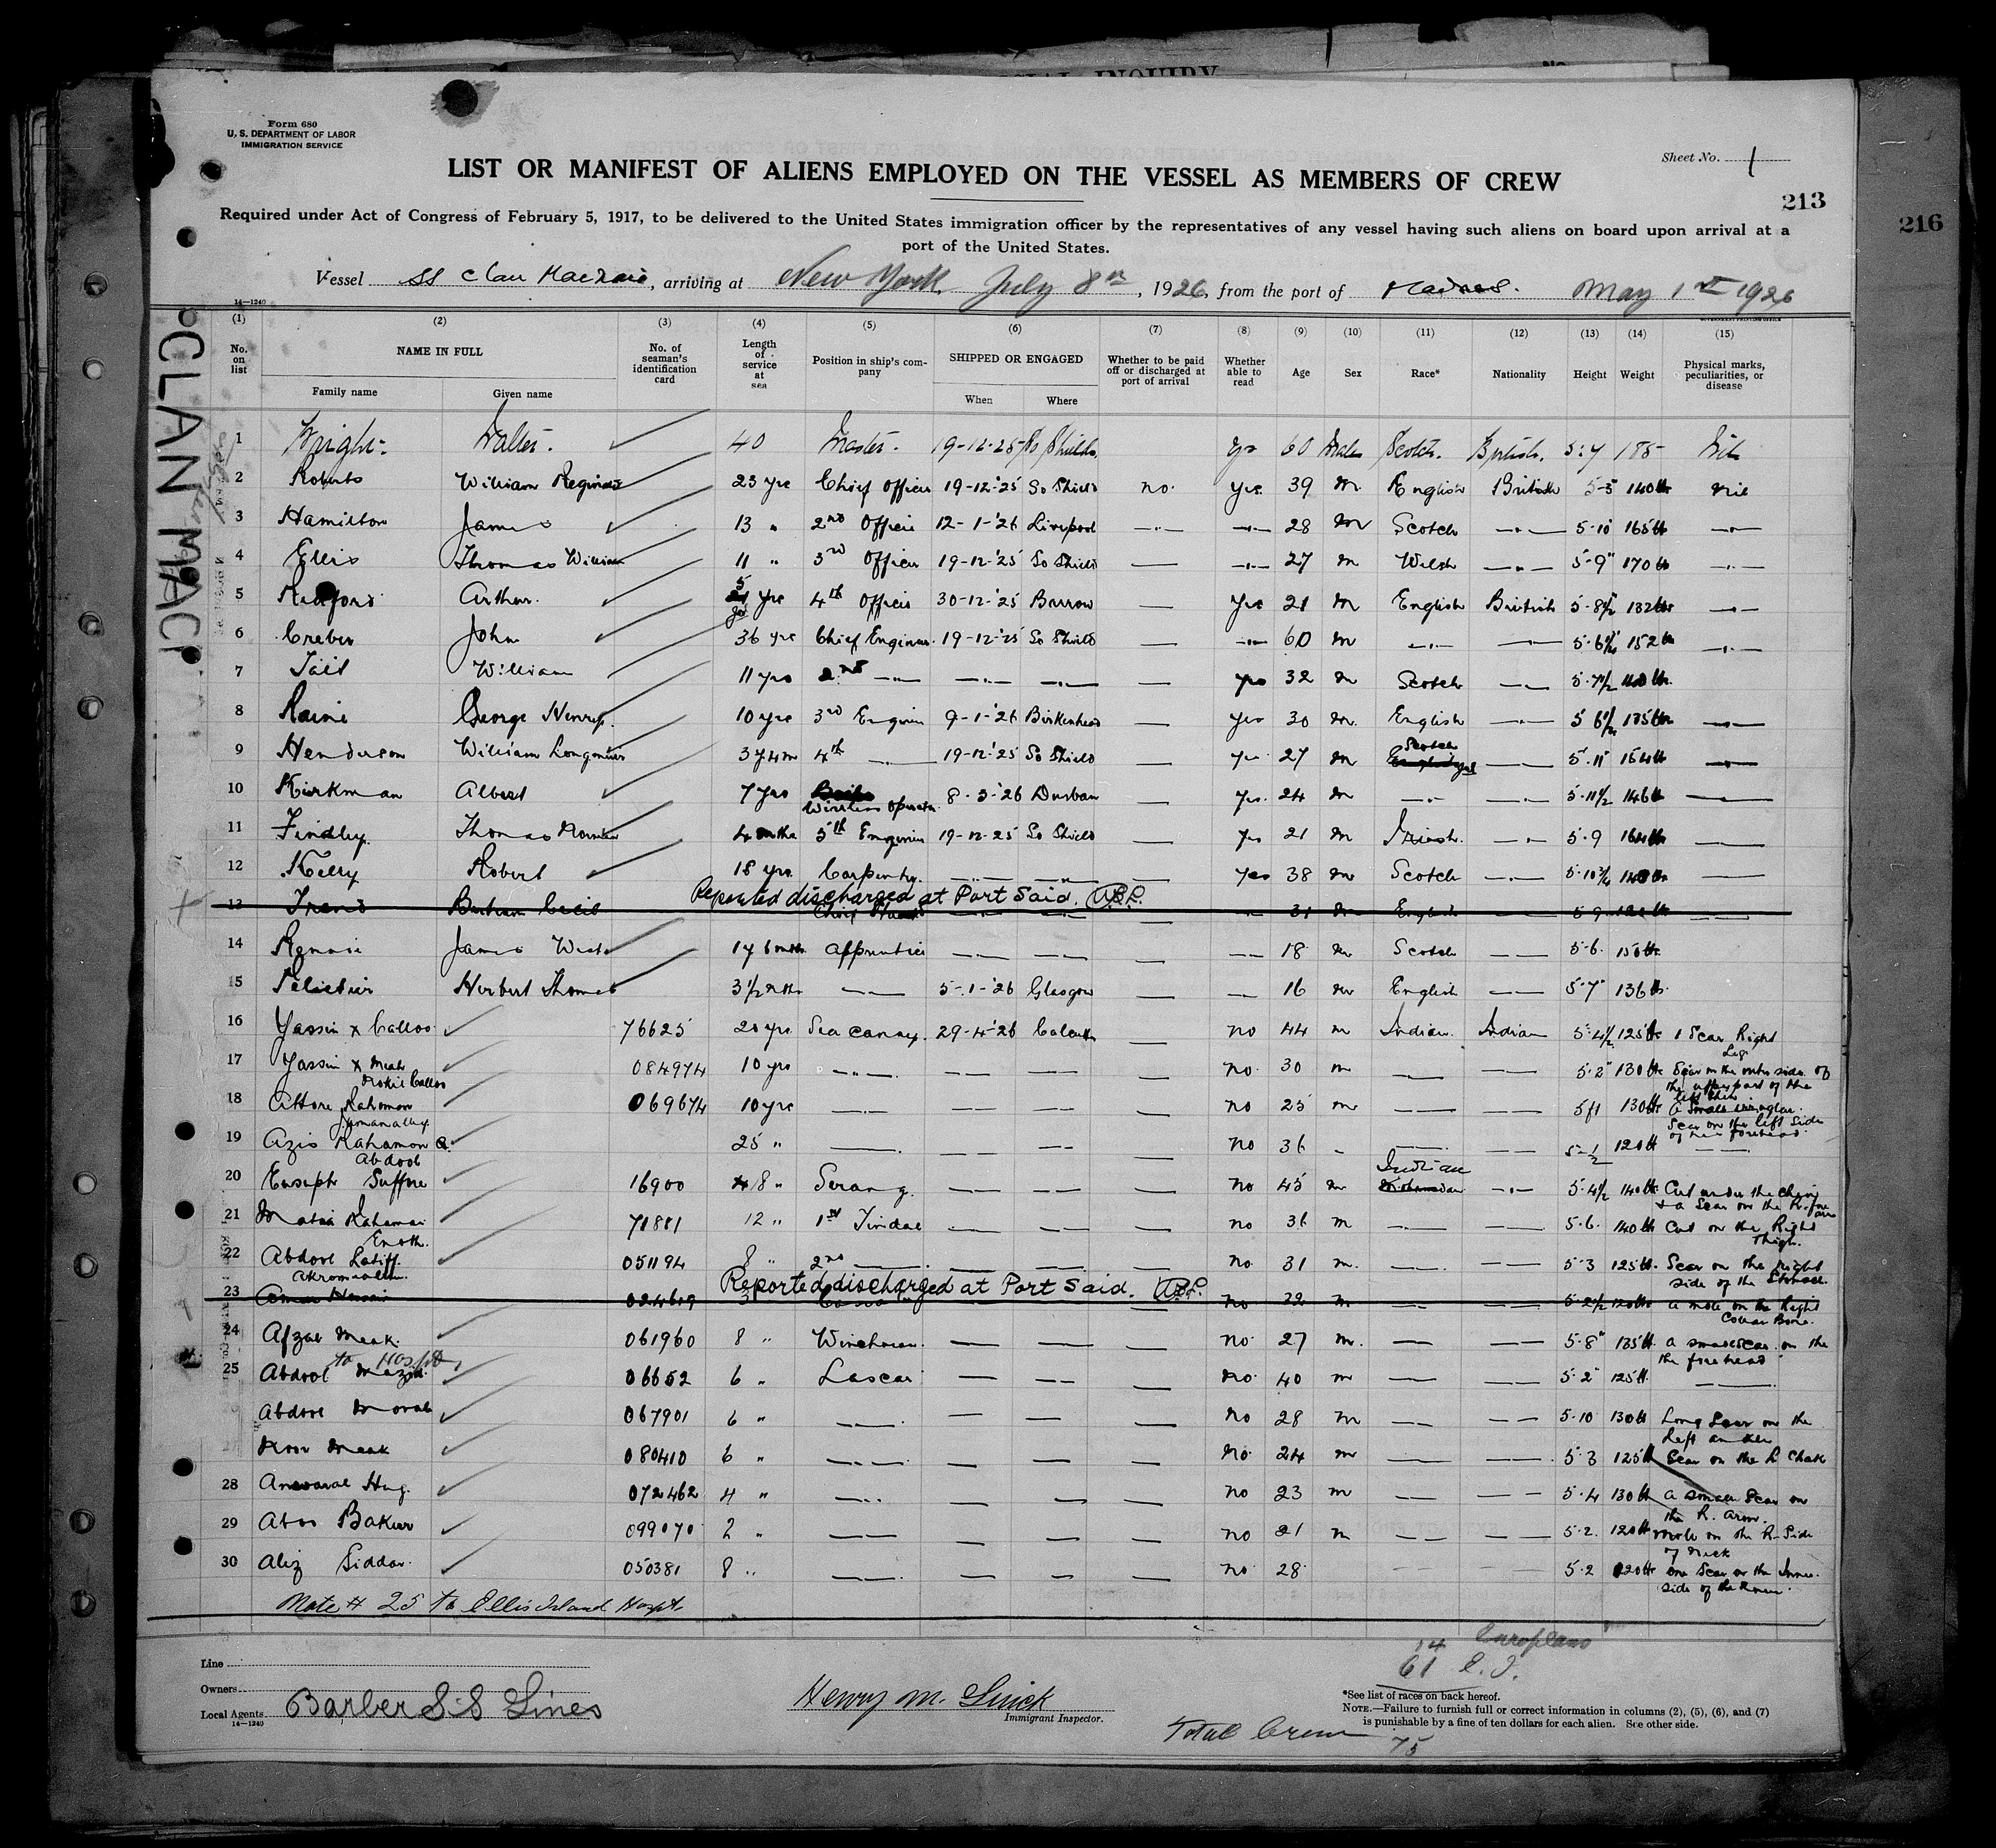 SPECIAL INQUIRY
No.
Form 680
U. S. DEPARTMENT OF LABOR
IMMIGRATION SERVICE
Sheet No. 1
LIST OR MANIFEST OF ALIENS EMPLOYED ON THE VESSEL AS MEMBERS OF CREW
213
216
Required under Act of Congress of February 5, 1917, to be delivered to the United States immigration officer by the representatives of any vessel having such aliens on board upon arrival at a
port of the United States.
Vessel SS Clan, arriving at New York July 8th, 1926, from the port of Madras. May 1st 1926
14—1240
GOVERNMENT PRINTING OFFICE
CLAN MAC
(1) (2) (3) (4) (5) (6) (7) (8) (9) (10) (11) (12) (13) (14) (15)
No. on list
NAME IN FULL
Family name
Given name
No. of seaman's identification card
Length of service at sea
Position in ship's company
SHIPPED OR ENGAGED
When
Where
Whether to be paid off or discharged at port of arrival
Whether able to read
Age
Sex
Race*
Nationality
Height
Weight
Physical marks, peculiarities, or disease
1 Wright Walter. 40 Master. 19-12-25 So Shields. yes 60 Male Scotch. British. 5:7 185 Nil
2 Roberts William Reginald 23 yrs Chief Officer 19-12-'25 So Shields no. yes. 39 m. English British 5-5 140lb nil
3 Hamilton James 13 " 2nd Officer 12-1-'26 Liverpool —"— —"— 28 m Scotch —"— 5-10 165lb —"—
4 Ellis Thomas William 11 " 3rd Officer 19-12-'25 So Shields — —"— 27 m Welsh —"— 5-9" 170lb —"—
5 Arthur. 5 yrs 4th Officer 30-12-'25 Barrow — yes 21 m English British 5-8½ 132lbs —"—
6 John 36 yrs Chief Engineer. 19-12-'25 So Shields — —"— 60 m —"— — 152lb —"—
7 Tait William 11 yrs 2nd —"— —"— —"— — yes 32 m Scotch —"— 5-7½
8 George Henry. 10 yrs 3rd Engineer 9-1-'26 Birkenhead — yes 30 m. English —"— 135lb —"—
9 Henderson William 3y4m 4th — 19-12-'25 So Shields — yes 27 m Scotch — 5-11 154lb —"—
10 Kirkman Albert 7 yrs Wireless Operator. 8-3-'26 Durban — yes. 24 m —"— —"— 5-11½ 146lb —
11 Findley. Thomas 4 mths 5th Engineer 19-12-25 So Shields — yes 21 m — 5-9 —
12 Kelly Robert 18 yrs. Carpenter. —"— —"— — yes 38 m Scotch —"— —
13 Cecil Reported discharged at Port Said. 31 m English 5-9
14 James 1y 6 mths Apprentice — — — — 18 m Scotch — 5-6. 150lb.
15 Herbert Thomas 3½ mths —"— 5-1-'26 Glasgow — — 16 m English — 5-7" 136lb.
16 Yassin x Calloo 76625 20 yrs. Sea Cunny. 29-4-'26 Calcutta — no 44 m Indian. Indian 5-4½ 125lb. 1 Scar Right
Leg.
17 Yassin x Meah 084974 10 yrs —"— — — — no. 30 m — — 5-2" 130lb Scar on the outer side of
the upper part of the
18 Attore Rahoman 069674 10 yrs — — — — no 25 m — — 5ft 130lb
Scar on the left side
of her forehead.
19 Azis Rahamon 25 " — — — — no 36 — — 120lb —
Abdool
20 Euseph Suffore 16900 18 " Serang. — — — no 45 m Indian —"— 5-4½ 140lb Cut under the chin
+ a Scar on the R. forearm
21 71881 12 " 1st Tindal — — — no 36 m — — 5-6. 140lb Cut on the Right
Thigh.
22 Abdool Latiff. 051194 8 " 2nd — — — — no. 31 m. — — 5-3 125lb. Scar on the Right
side of the
23 Reported discharged at Port Said. no 32 m 5-2½ 120lb a mole on the Right
Collar Bone.
24 Afzal Meah. 061960 8 " Winchman — — — no. 27 m. — — 5-8" 135lb. a small scar on the
the forehead
to Hospital
25 Abdool Mazid. 06652 6 " Lascar — — — no. 40 m — — 5-2" 125lb. —
Abdool 067901 6 " — — — — no 28 m — — 5-10 130lb Long Scar on the
left
Noor Meah 080410 6 " — — — — no. 24 m — — 5-3 125lb Scar on the L
28 Anwaral Huq. 072462 4 " — — — — no 23 m — — 5-4 130lb a small Scar on
the R. arm.
29 Aboo Baker 099070 2 " — — — — no 21 m — — 5-2. 120lb mole on the R. Side
of neck
30 Aliz Siddar. 050381 8 " — — — — no. 28. 5-2 120lb one Scar on the Inner
side of the
Note # 25 to Ellis Island Hospt.
Line
Owners
Local Agents Barber S.S Lines
14—1240
Henry M.
Immigrant Inspector.
14 Europeans
61 E. I.
Total Crew 75
*See list of races on back hereof.
NOTE.—Failure to furnish full or correct information in columns (2), (5), (6), and (7)
is punishable by a fine of ten dollars for each alien. See other side.